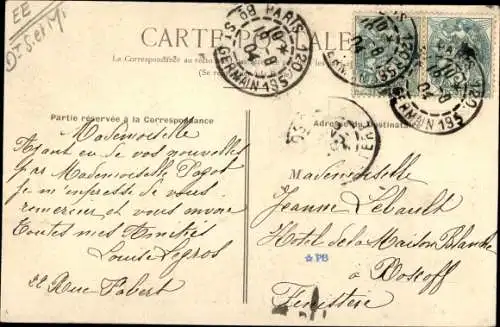 EE
Dt S. et M.
CARTE POSTALE
La Correspondance au recto
Partie réservée à la Correspondance
Adresse du Destinataire
PARIS 120
Bd ST GERMAIN 195
Mademoiselle
Ayant eu de vos nouvelles
par Mademoiselle Pagot
je m'empresse de vous
remercier et vous envoie
Toutes mes Amitiés
Louise Legros
22 Rue Fabert
Mademoiselle
Jeanne Lebault
Hotel de la Maison Blanche
à Roscoff
Finistère
*PB